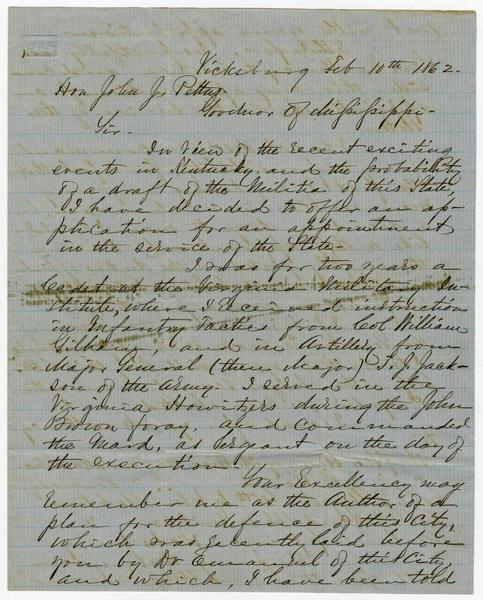 Vicksburg Feb 10th 1862.
Hon John J. Pettus
Governor Of Mississippi-
Sir.
In view of the recent exciting
events in Kentucky, and the probability
of a draft of the Militia of this State
I have decided to offer an ap-
plication for an appointment
in the service of the State-
I was for two years a
Cadet at the Virginia Military In-
stitute, where I received instruction
in Infantry Tactics from Col William
Gilham, and in Artillery from
Major General (then Major) T. J. Jack-
son of the Army. I served in the
Virginia Howitzers during the John
Brown foray, and commanded
the Guard, as Sergeant on the day of
the execution
Your Excellency may
remember me as the Author of a
plan for the defence of this City,
which was recently laid before
you by Dr Emanuel of this City
and which, I have been told